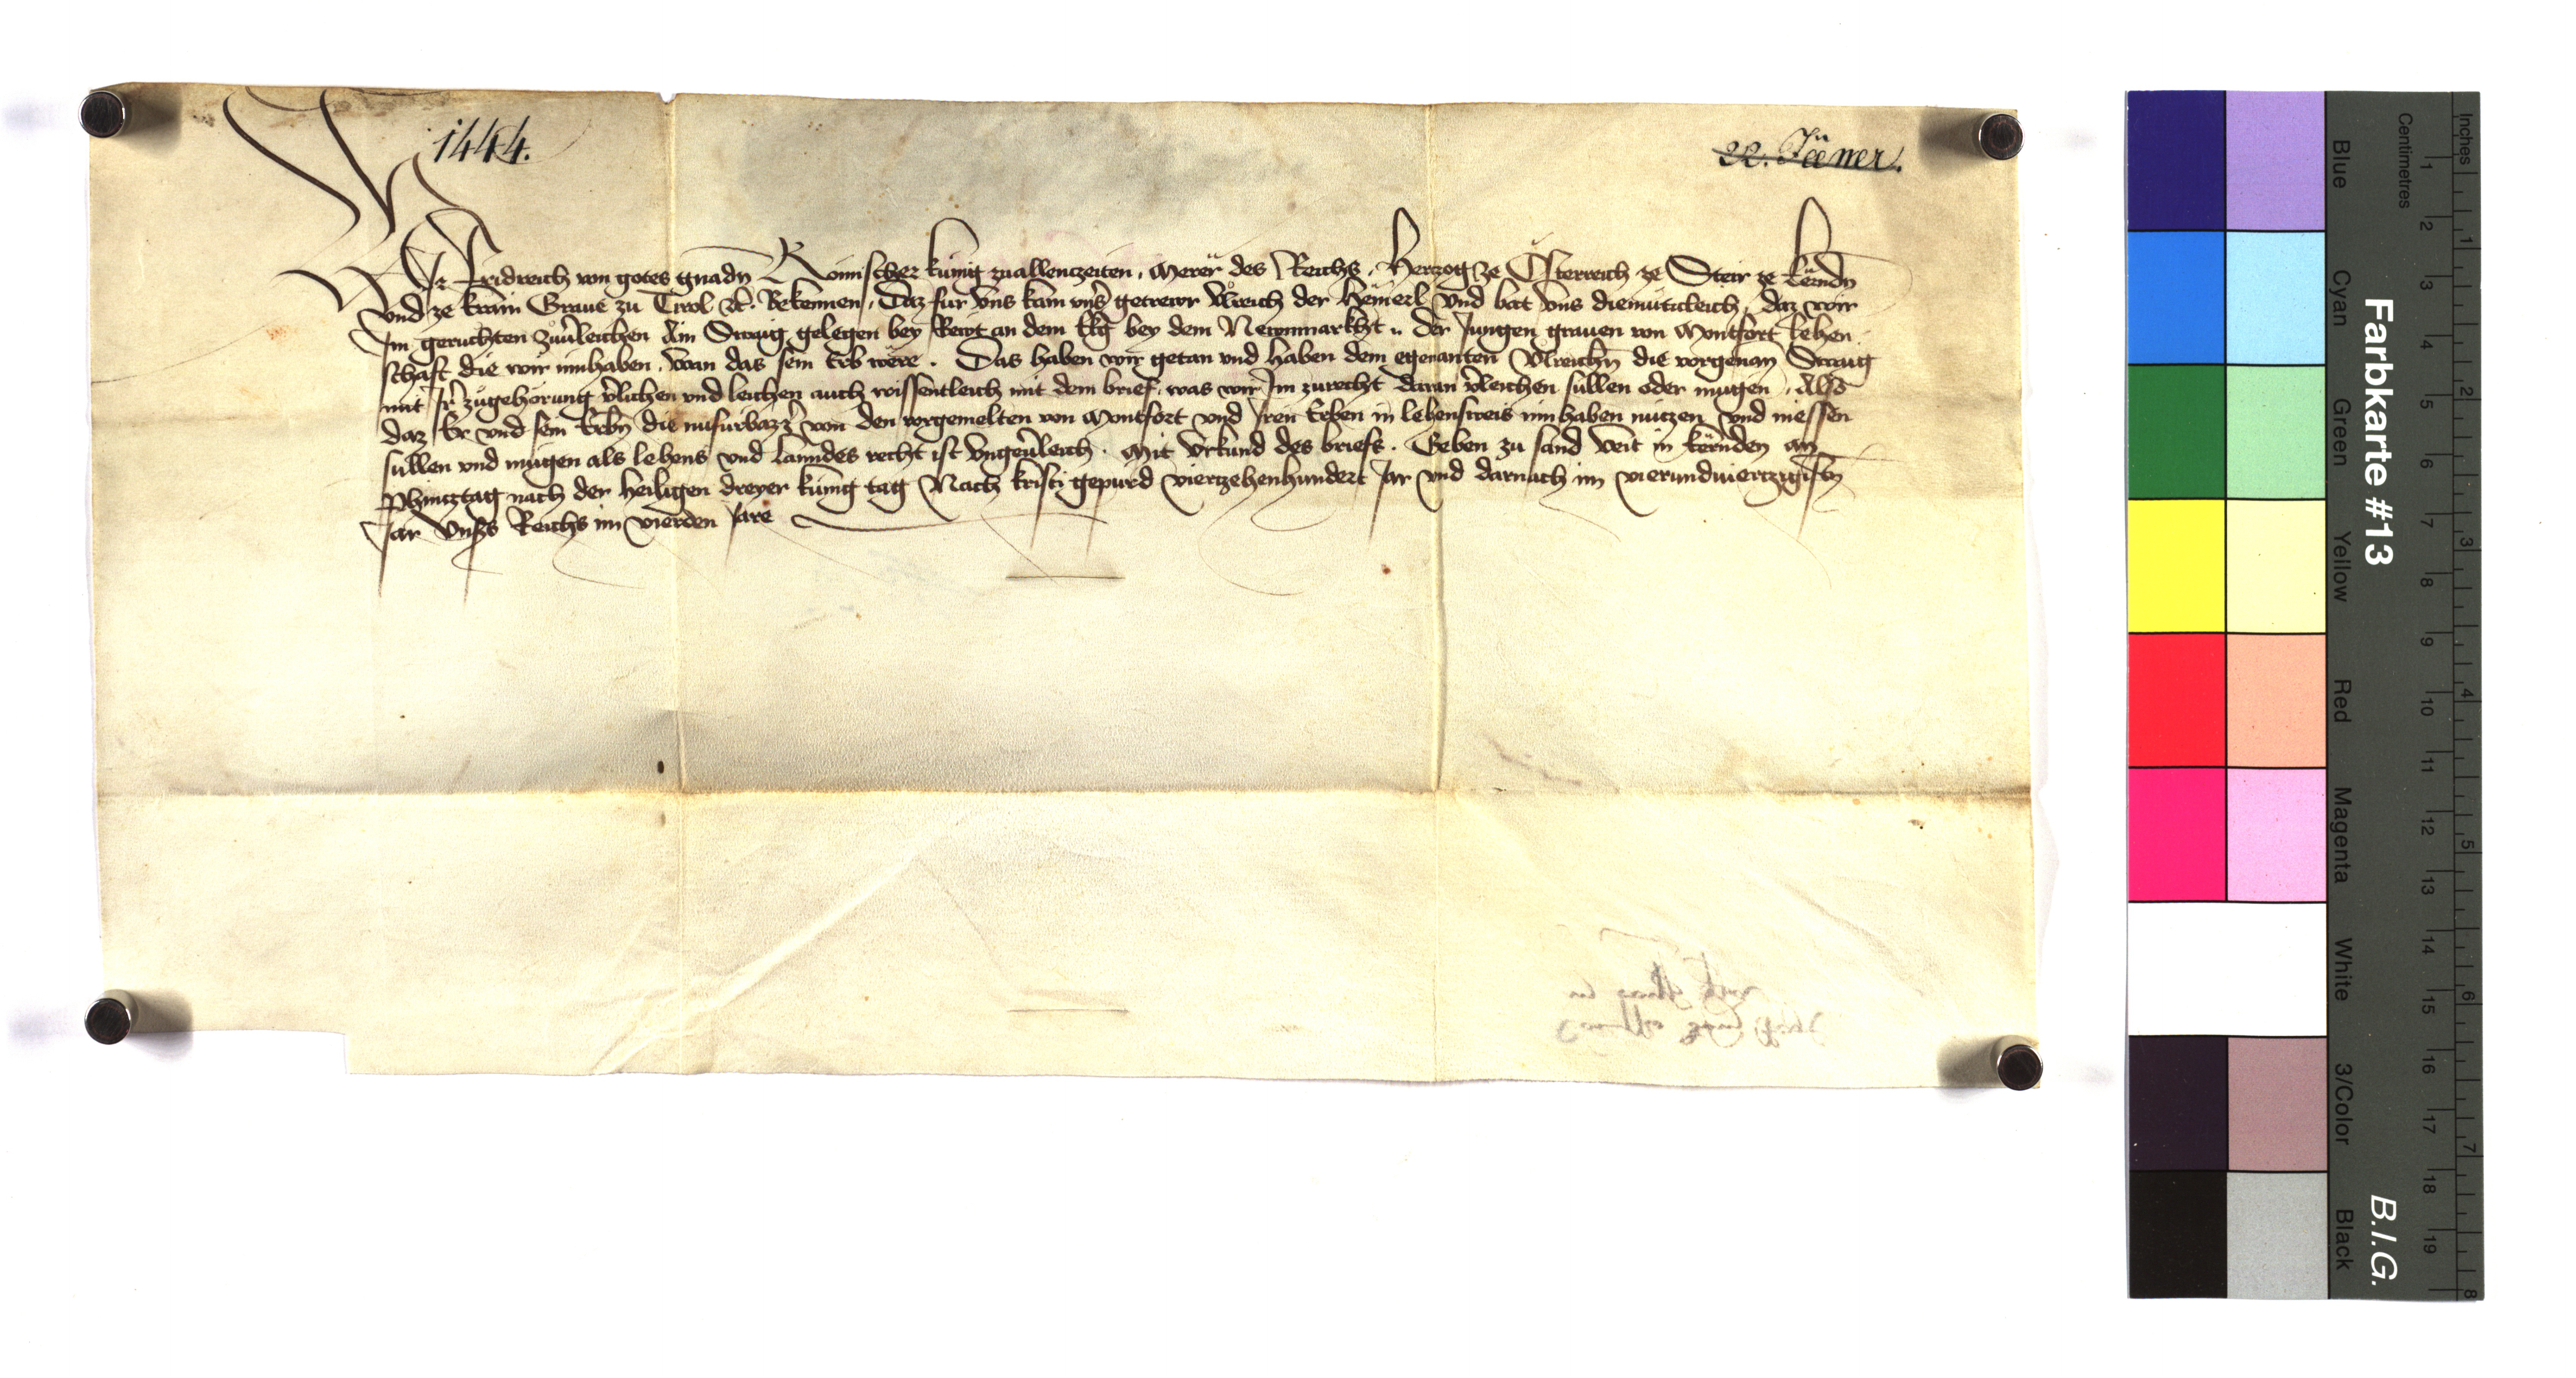 1444.
22. Jänner.
Wir Fridreich von gotes gnadn Römischer kunig zuallenczeiten, Merer des Reichs, Herczog ze Österreich ze Steir ze kernndn
vnd ze krain Graue zu Tirol etc. Bekennen, Daz fur vns kam vnser getrewr Vlreich der und bat vns diemuticleich, daz wir
Im geruchten zuuerleichen Ain Swaig gelegen bey an dem bey dem Newnmarkht, der Jungen grauen von Montfort lehen
schaft die wir innhaben, wan das sein Erb were. Das haben wir getan vnd haben dem egenanten Vlreichn die vorgenan Swaig
mit Ir zugehörung verlihen vnd leichen auch wissentleich mit dem brief, was wir Im zurecht daran verleichen sullen oder mugen, Also
daz Er vnd sein Erbn die nufurbazz von den vorgemelten von Montfort vnd Iren Erben in lehensweis innhaben nuczen vnd niessen
sullen vnd mugen als lehens vnd lanndes recht ist vngeuerleich. Mit vrkund des briefs. Geben zu sand Veit in kernden an
Phincztag nach der heiligen dreyer kunig tag Nach kristi gepurd vierzehenhundert Jar vnd darnach im vierundviertzigisten
Jar Vnsers Reichs im vierden Jare
Inches
Centimetres
1 2 3 4 5 6 7 8 9 10 11 12 13 14 15 16 17 18 19
1 2 3 4 5 6 7 8
Farbkarte #13
B.I.G.
Blue
Cyan
Green
Yellow
Red
Magenta
White
3/Color
Black